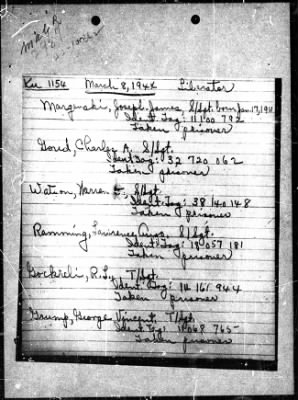 Ku 1154 March 8, 1944 Liberator
Margenski, Joseph James, S/Sgt. born Jan 17, 1911
Ident. Tag: 11 100 792
Taken prisoner
Gored, Charles A. S/Sgt.
Ident Tag: 32 720 062
Taken prisoner
Watson, Warren S/Sgt.
Ident. Tag: 38 140 148
Taken prisoner
Ramming, Lawrence S/Sgt.
Ident. Tag: 19 057 181
Taken prisoner
R. L., T/Sgt.
Ident. Tag: 14 161 944
Taken prisoner
George Vincent, T/Sgt.
Ident. Tag: 11 068 765
Taken prisoner